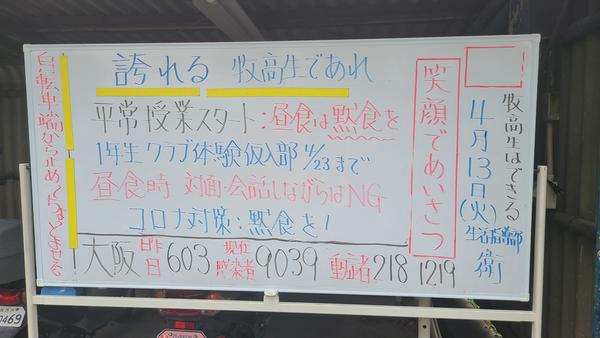 牧高生はできる
4月13日(火)
生活指導部 衛
笑顔であいさつ
誇れる 牧高生であれ
平常授業スタート:昼食は黙食を
1年生クラブ体験仮入部 4/23まで
昼食時 対面・会話しながらはNG
コロナ対策:黙食を!
大阪 昨日 603 現在感染者 9039 218 1219
自転車端から止めて
69